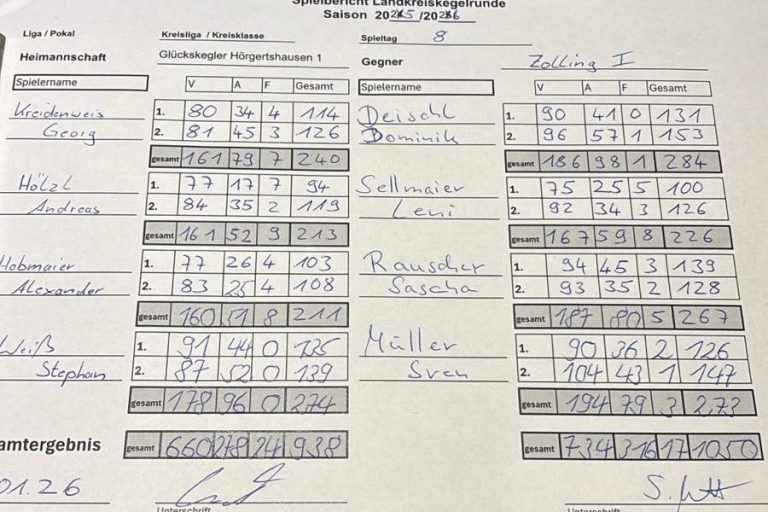 Spielbericht Landkreiskegelrunde
Saison 2025 /2026
Liga / Pokal Kreisliga / Kreisklasse Spieltag 8
Heimannschaft Glückskegler Hörgertshausen 1 Gegner Zolling I
Spielername V A F Gesamt Spielername V A F Gesamt
Kreidenweis 1. 80 34 4 114 Deischl 1. 90 41 0 131
Georg 2. 81 45 3 126 Dominik 2. 96 57 1 153
gesamt 161 79 7 240 gesamt 186 98 1 284
Hölzl 1. 77 17 7 94 Sellmaier 1. 75 25 5 100
Andreas 2. 84 35 2 119 Leni 2. 92 34 3 126
gesamt 161 52 9 213 gesamt 167 59 8 226
Hobmaier 1. 77 26 4 103 Rauscher 1. 94 45 3 139
Alexander 2. 83 25 4 108 Sascha 2. 93 35 2 128
gesamt 160 51 8 211 gesamt 187 80 5 267
Weiß 1. 91 44 0 135 Müller 1. 90 36 2 126
Stephan 2. 87 52 0 139 Sven 2. 104 43 1 147
gesamt 178 96 0 274 gesamt 194 79 3 273
amtergebnis gesamt 660 278 24 938 gesamt 734 316 17 1050
01.26
Unterschrift Unterschrift